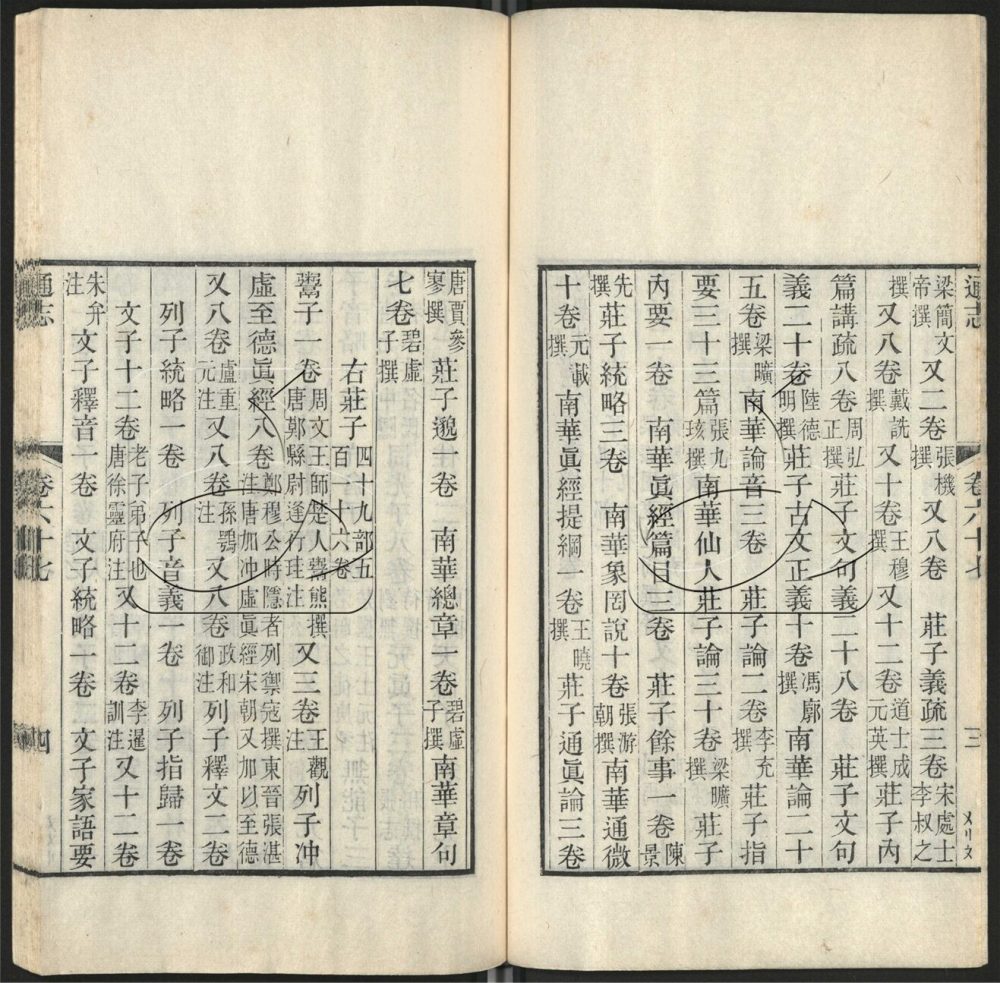 通志 卷六十七 三
梁簡文帝撰 又二卷張機撰 又八卷 莊子義疏三卷宋處士李叔之
撰 又八卷戴詵撰 又十卷王穆撰 又十二卷道士成元英撰 莊子內
篇講疏八卷周弘正撰 莊子文句義二十八卷 莊子文句
義二十卷陸德明撰 莊子古文正義十卷馮廓撰 南華論二十
五卷梁曠撰 南華論音三卷 莊子論二卷李充撰 莊子指
要三十三篇張九垓撰 南華仙人莊子論三十卷梁曠撰 莊子
內要一卷 南華眞經篇目三卷 莊子餘事一卷陳景
先撰 莊子統略三卷 南華象罔說十卷張游朝撰 南華通微
十卷元載撰 南華眞經提綱一卷王曉撰 莊子通眞論三卷
唐賈參寥撰 莊子邈一卷 南華總章一卷碧虛子撰 南華章句
七卷碧虛子撰
右莊子四十九部五百一十六卷
鬻子一卷周文王師楚人鬻熊撰唐鄭縣尉逢行珪注 又三卷王觀注 列子冲
虛至德眞經八卷鄭穆公時隱者列禦寇撰東晉張湛注唐加冲虛眞經宋朝又加以至德
又八卷盧重元注 又八卷孫鶚注 又八卷政和御注 列子釋文二卷
列子統略一卷 列子音義一卷 列子指歸一卷
文子十二卷老子弟子也唐徐靈府注 又十二卷李暹訓注 又十二卷
朱弁注 文子釋音一卷 文子統略一卷 文子家語要
通志 卷六十七 四